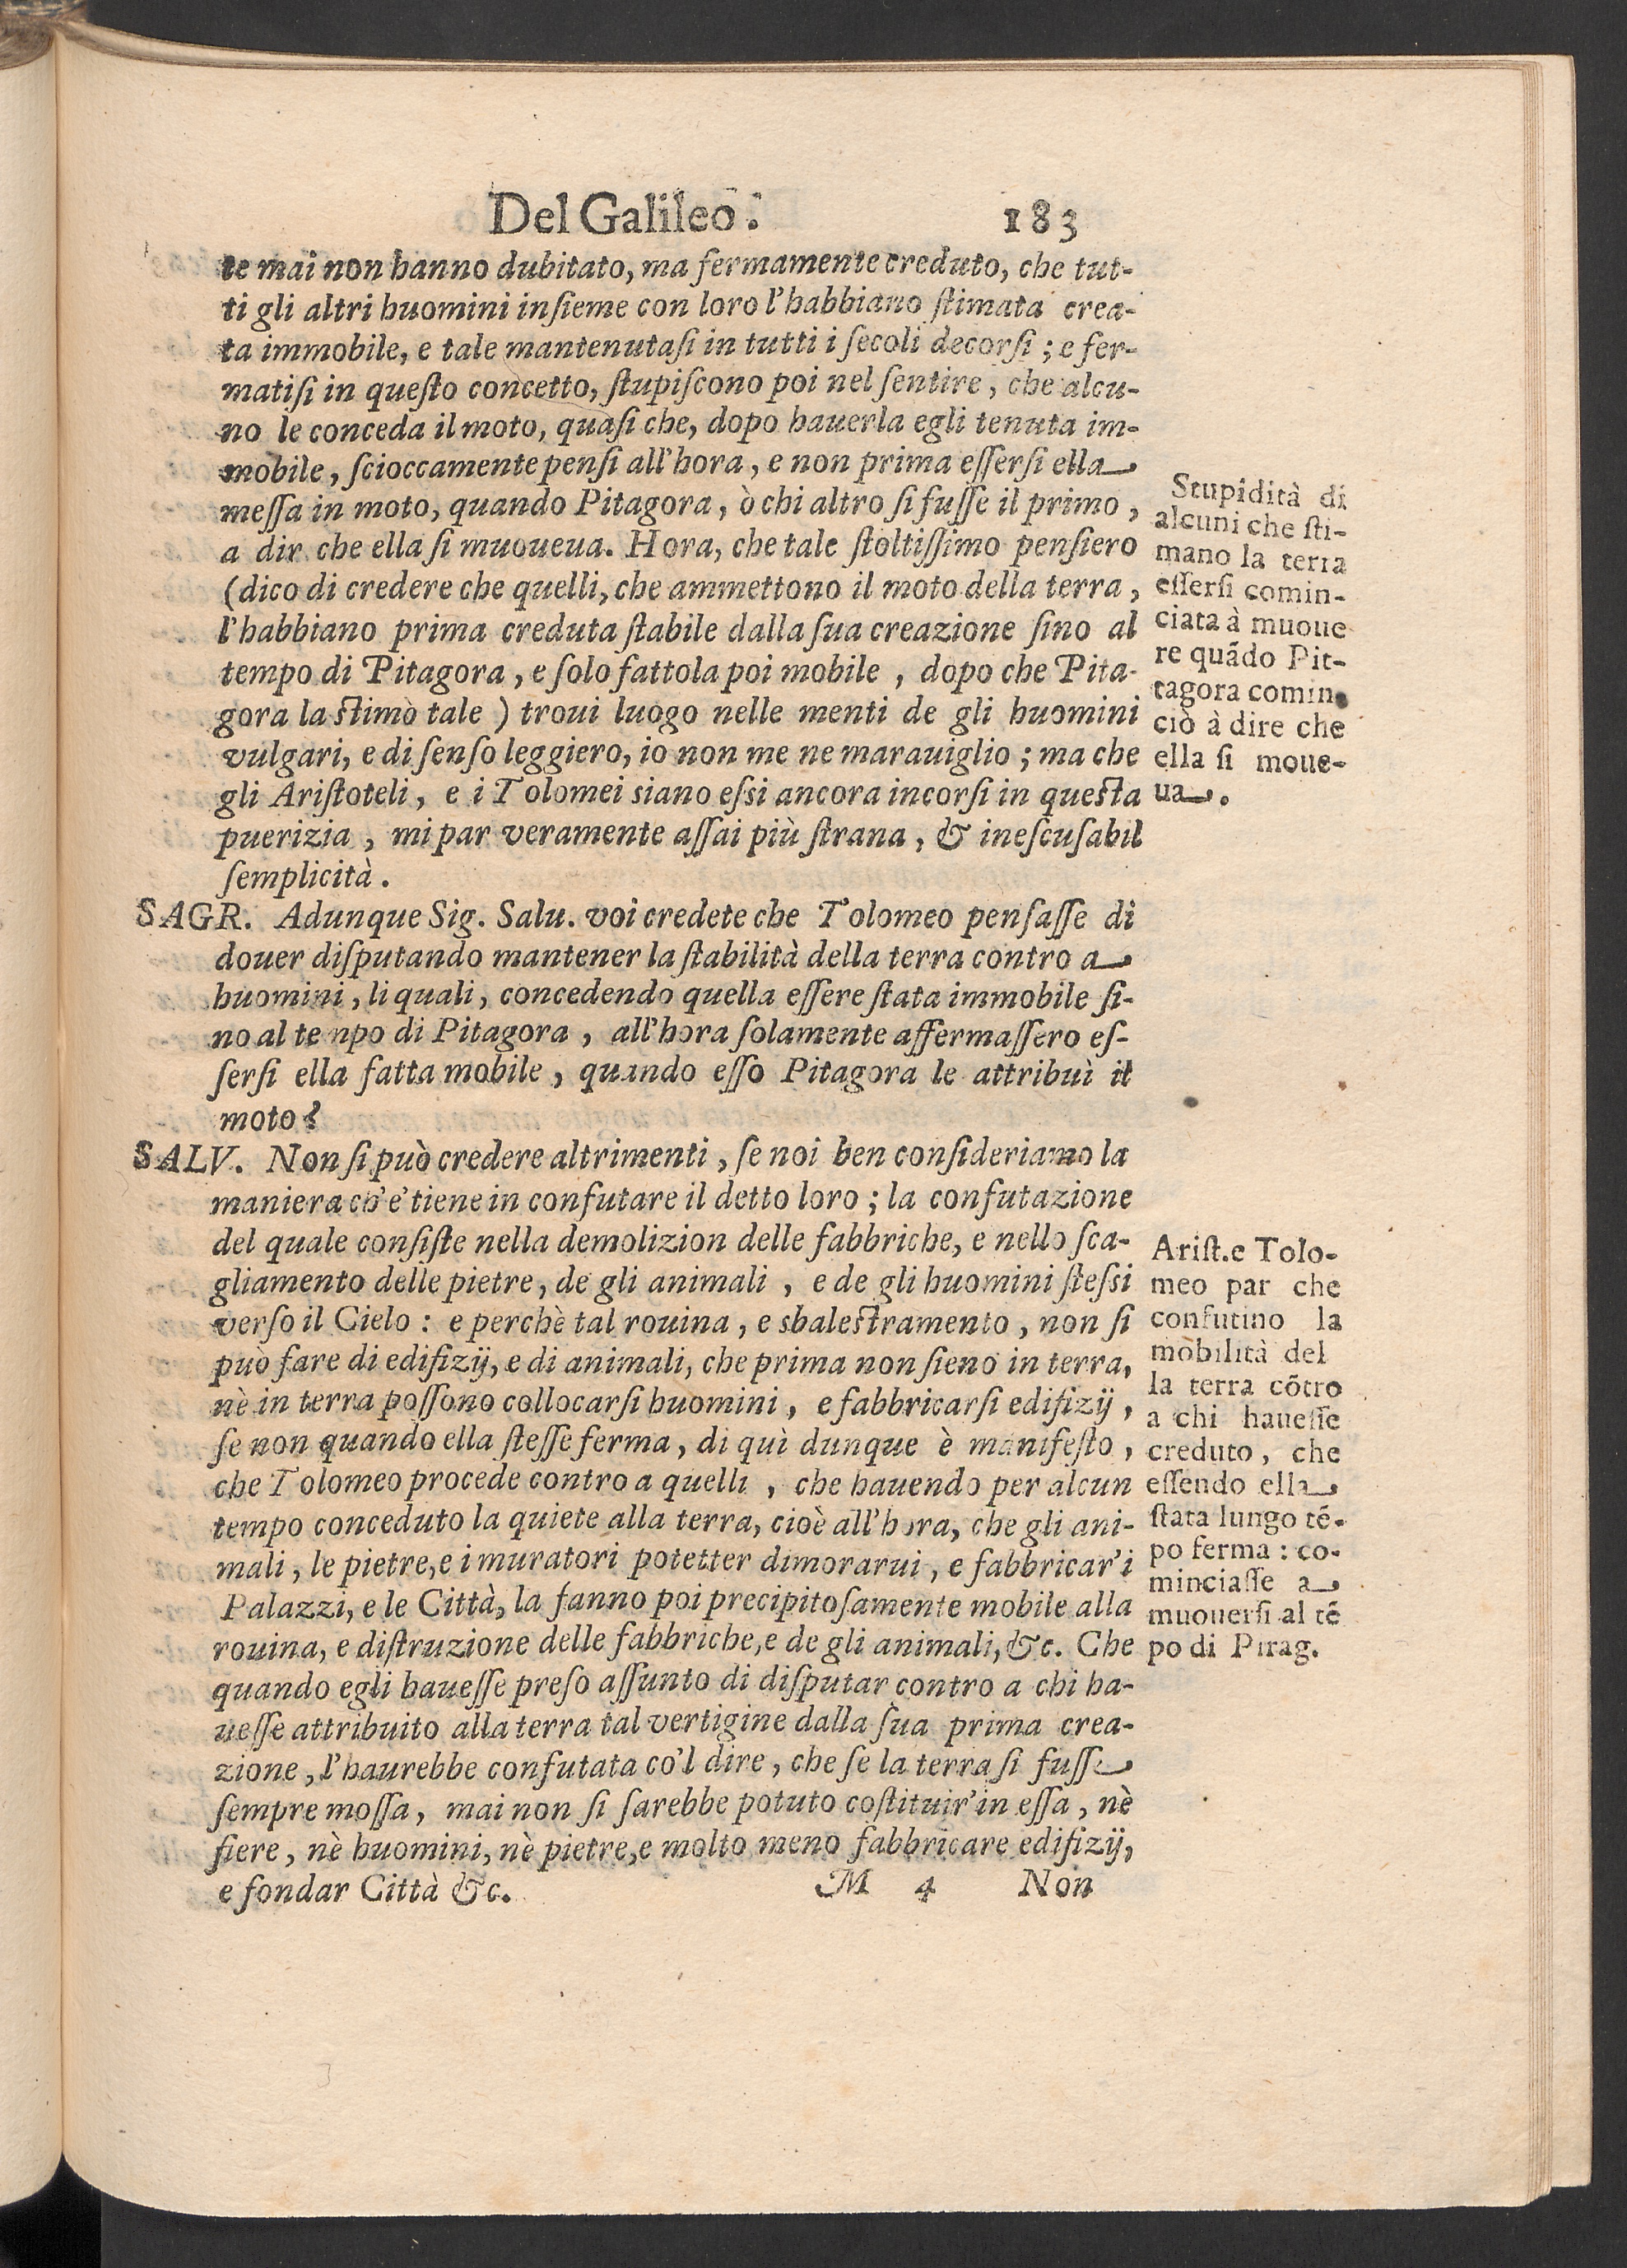 Del Galileo. 183
te mai non hanno dubitato, ma fermamente creduto, che tut-
ti gli altri huomini inſieme con loro l'habbiano ſtimata crea-
ta immobile, e tale mantenutaſi in tutti i ſecoli decorſi; e fer-
matiſi in queſto concetto, ſtupiſcono poi nel ſentire, che alcu-
no le conceda il moto, quaſi che, dopo hauerla egli tenuta im-
mobile, ſcioccamente penſi all'hora, e non prima eſſerſi ella
meſſa in moto, quando Pitagora, ò chi altro ſi fuſſe il primo,
a dir che ella ſi muoueua. Hora, che tale ſtoltiſſimo penſiero
(dico di credere che quelli, che ammettono il moto della terra,
l'habbiano prima creduta ſtabile dalla ſua creazione ſino al
tempo di Pitagora, e ſolo fattola poi mobile, dopo che Pita-
gora la ſtimò tale) troui luogo nelle menti de gli huomini
vulgari, e di ſenſo leggiero, io non me ne marauiglio; ma che
gli Ariſtoteli, e i Tolomei siano eſsi ancora incorſi in queſta
puerizia, mi par veramente aſſai più ſtrana, & ineſcuſabil
ſemplicità.
Stupidità di
alcuni che ſti-
mano la terra
eſſerſi comin-
ciata à muoue
re quãdo Pit-
tagora comin-
ciò à dire che
ella ſi moue-
ua.
SAGR. Adunque Sig. Salu. voi credete che Tolomeo penſaſſe di
douer diſputando mantener la ſtabilità della terra contro a
huomini, li quali, concedendo quella eſſere ſtata immobile ſi-
no al tempo di Pitagora, all'hora ſolamente affermaſſero eſ-
ſerſi ella fatta mobile, quando eſſo Pitagora le attribuì il
moto?
SALV. Non ſi può credere altrimenti, ſe noi ben conſideriamo la
maniera ch'e' tiene in confutare il detto loro; la confutazione
del quale conſiſte nella demolizion delle fabbriche, e nello ſca-
gliamento delle pietre, de gli animali, e de gli huomini ſteſsi
verſo il Cielo: e perchè tal rouina, e sbaleſtramento, non ſi
può fare di edifizij, e di animali, che prima non ſieno in terra,
nè in terra poſſono collocarſi huomini, e fabbricarſi edifizij,
ſe non quando ella ſteſſe ferma, di quì dunque è manifeſto,
che Tolomeo procede contro a quelli, che hauendo per alcun
tempo conceduto la quiete alla terra, cioè all'hora, che gli ani-
mali, le pietre, e i muratori potetter dimorarui, e fabbricar'i
Palazzi, e le Città, la fanno poi precipitoſamente mobile alla
rouina, e diſtruzione delle fabbriche, e de gli animali, &c. Che
quando egli haueſſe preſo aſſunto di diſputar contro a chi ha-
ueſſe attribuito alla terra tal vertigine dalla ſua prima crea-
zione, l'haurebbe confutata co'l dire, che ſe la terra ſi fuſſe
ſempre moſſa, mai non ſi ſarebbe potuto coſtituir'in eſſa, nè
fiere, nè huomini, nè pietre, e molto meno fabbricare edifizij,
e fondar Città &c.
Ariſt. e Tolo-
meo par che
confutino la
mòbilità del
la terra cõtro
a chi haueſſe
creduto, che
eſſendo ella
ſtata lungo tẽ-
po ferma: co-
minciaſſe a
muouerſi al tẽ
po di Pitag.
M 4 Non